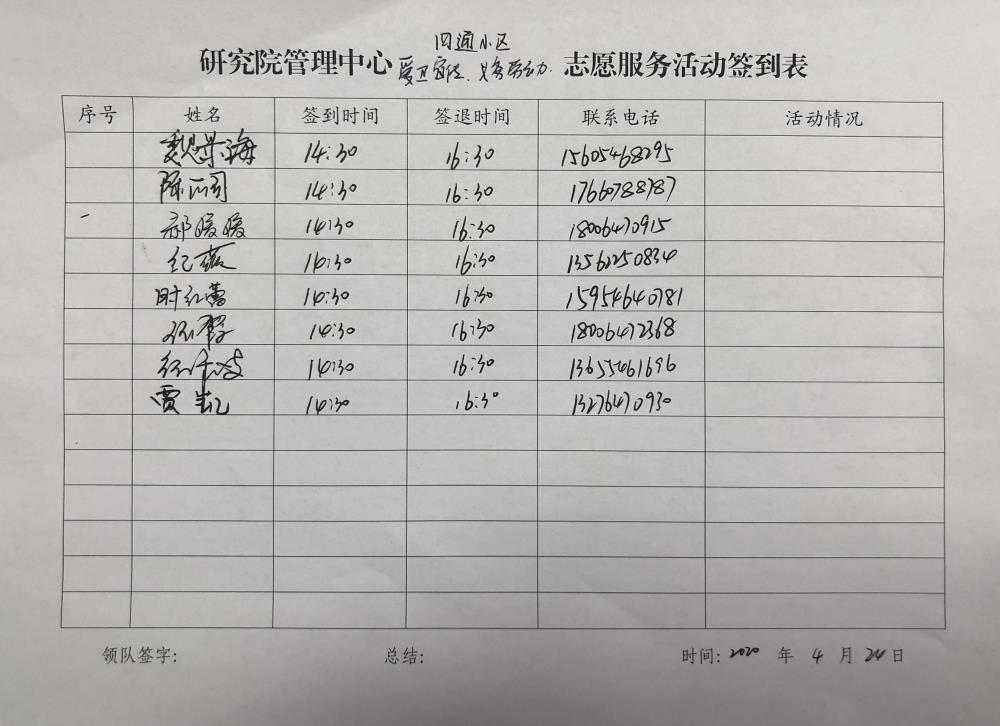 四通小区
研究院管理中心 爱卫宣传、义务劳动 志愿服务活动签到表
序号 姓名 签到时间 签退时间 联系电话 活动情况
14:30 16:30 15605468295
14:30 16:30 17660788787
郝媛媛 14:30 16:30 18006470915
纪薇 14:30 16:30 13562250834
时红蕾 14:30 16:30 15954640781
14:30 16:30 18006472368
14:30 16:30 13655461696
贾凯 14:30 16:30 13276470930
领队签字: 总结: 时间: 2020 年 4 月 24 日